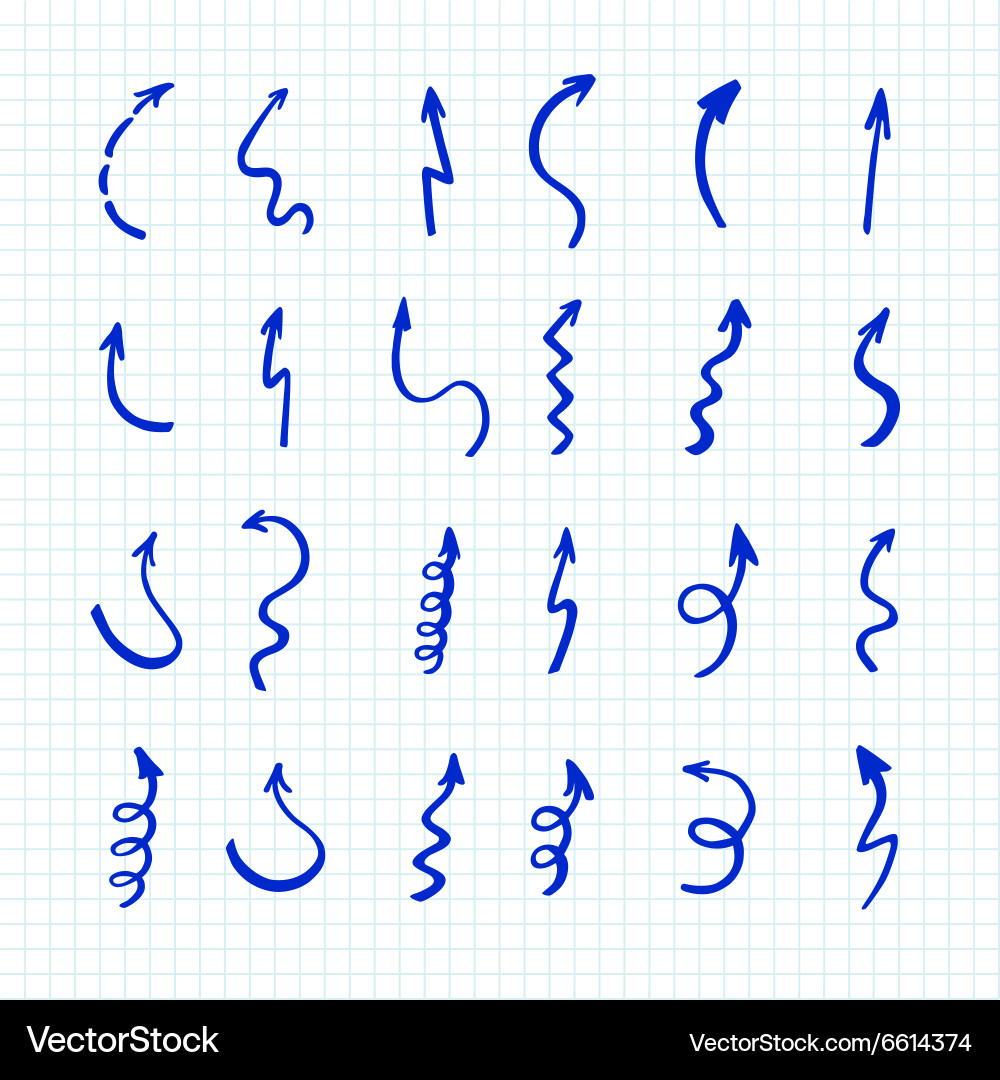 VectorStock
VectorStock.com/6614374